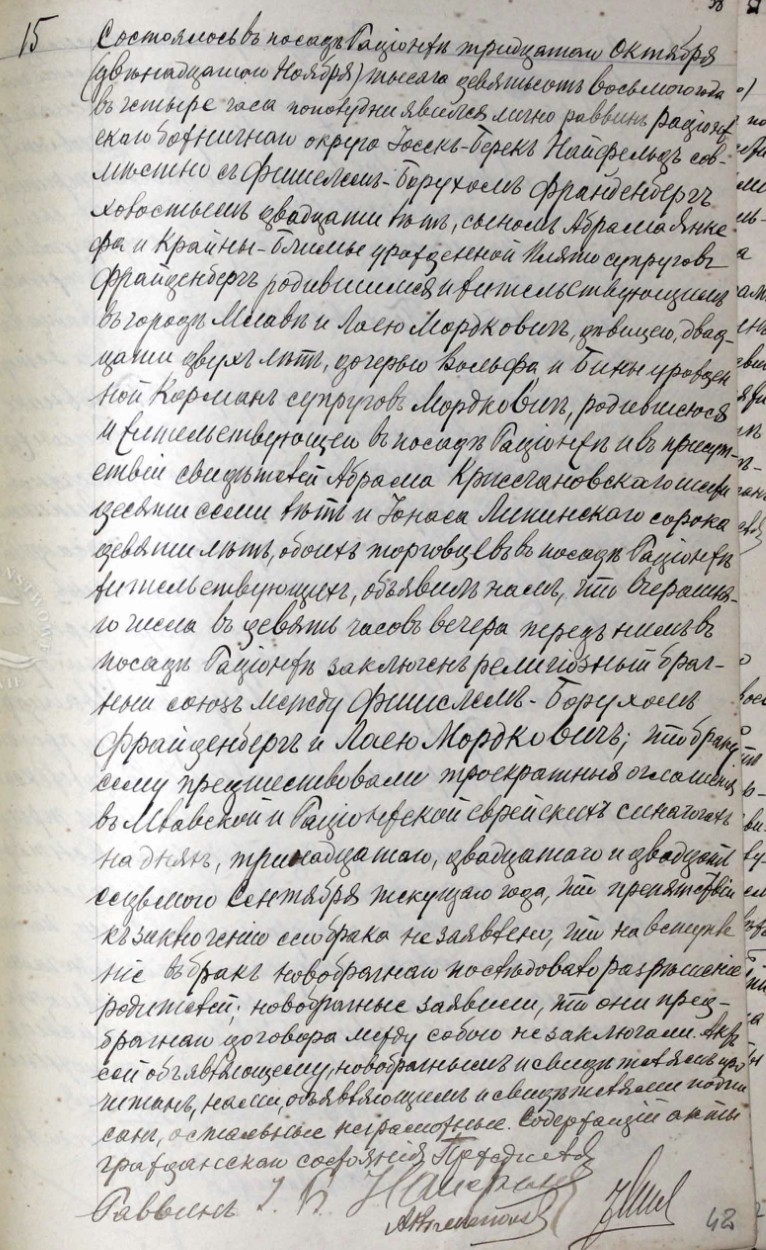 15
Состоялось въ посадѣ Раціонжъ тридцатаго Октября
(двѣнадцатаго Ноября) тысяча девятьсотъ восьмого года
въ четыре часа пополудни явился лично раввинъ Раціонж-
скаго божничнаго округа Іосекъ-Берекъ Найфельдъ сов-
мѣстно съ Фишелемъ-Борухомъ Фрайденбергъ
холостымъ двадцати лѣтъ, сыномъ Абрама Янке-
фа и Крайны-Блимы урожденной супруговъ
Фрайденбергъ родившимся и жительствующимъ
въ городѣ Млавѣ и Лаею Мордковичъ, дѣвицею, двад-
цати двухъ лѣтъ, дочерью Вольфа и Бины урожден-
ной Корманъ супруговъ Мордковичъ, родившеюся
и жительствующею въ посадѣ Раціонжѣ и въ присут-
ствіи свидѣтелей Абрама
десяти семи лѣтъ и Іонаса Липинскаго сорока
девяти лѣтъ, обоихъ торговцевъ въ посадѣ Раціонжѣ
жительствующихъ, объявилъ намъ, что вчерашня-
го числа въ девять часовъ вечера передъ нимъ въ
посадѣ Раціонжѣ заключенъ религіозный брач-
ный союзъ между Фишелемъ-Борухомъ
Фрайденбергъ и Лаею Мордковичъ; что браку
сему предшествовали троекратныя оглашенія
въ Млавской и Раціонжской еврейскихъ синагогахъ
на дняхъ, тринадцатаго, двадцатаго и двадцать
седьмого Сентября текущаго года, что препятствій
къ заключенію сего брака не заявлено, что на вступле
ніе въ бракъ новобрачнаго послѣдовало разрѣшеніе
родителей; новобрачные заявили, что они пред-
брачнаго договора между собою не заключали. Актъ
сей объявляющему, новобрачнымъ и свидѣтелямъ про
читанъ, нами, объявляющимъ и свидѣтелями подпи
санъ, остальные неграмотные. Содержащій акты
гражданскаго состоянія
Раввинъ І. Б.
42